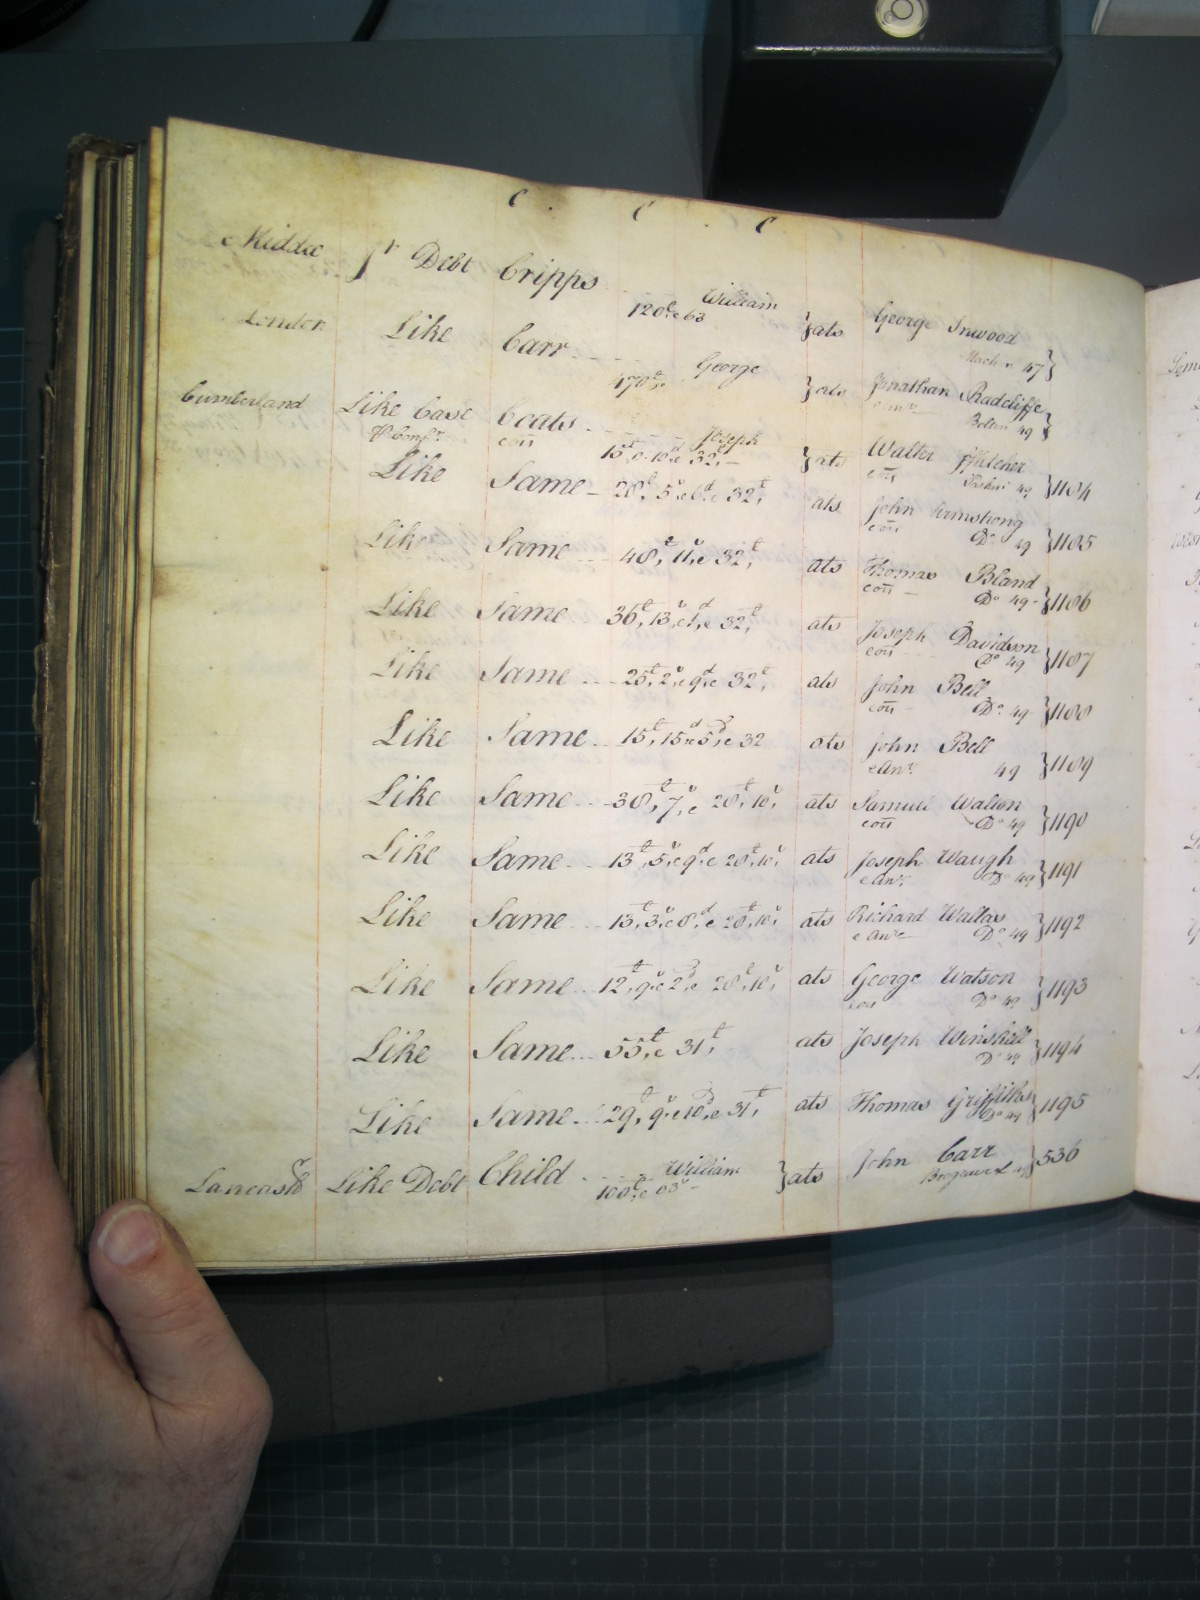 C C C
Middx Jr Debt Cripps William
120£ & 63s } ats George Inwood
47 }
London Like Carr George
470£ & } ats Jonathan Radcliffe
Bolton 49 }
Cumberland Like Case Coats Joseph
con 15£, 0.10d & 32£, } ats Walter
con 49 } 1184
Like Same 28£, 5s & 6d & 32£, ats John Armstrong
con Do 49 } 1185
Like Same 48£, 11s, & 32£, ats Thomas Bland
con Do 49 } 1186
Like Same 36£, 13s, & 1d, & 32£, ats Joseph Davidson
con Do 49 } 1187
Like Same 25£, 2s, & 9d, & 32£, ats John Bell
con Do 49 } 1188
Like Same 15£, 15s & 5d, & 32 ats John Bell
& anr 49 } 1189
Like Same 38£, 7s, & 28£, 10s, ats Samuel Walton
con Do 49 } 1190
Like Same 13£, 5s & 9d, & 28£, 10s, ats Joseph Waugh
& anr Do 49 } 1191
Like Same 13£, 3s, & 8d, & 28£, 10s, ats Richard Wallas
& anr Do 49 } 1192
Like Same 12£, 9s, & 2d, & 28£, 10s, ats George Watson
con Do 49 } 1193
Like Same 55£, & 31£, ats Joseph
Do 49 } 1194
Like Same 29£, 9s, & 10d, & 31£, ats Thomas Griffiths
Do 49 } 1195
Lancastr Like Debt Child William
100£, & 63s } ats John Carr
} 536